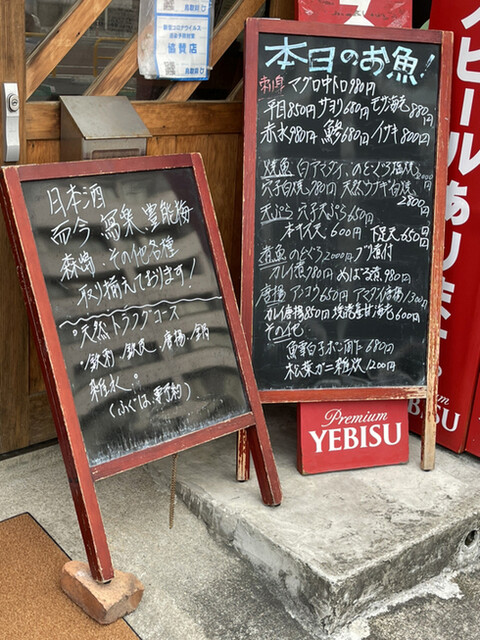 本日のお魚!
刺身 マグロ中トロ980円
平目850円 サヨリ680円 モサ海老880円
赤水980円 鯵680円 イサキ800円
焼魚 白アマダイ、のどぐろ塩焼2000円
穴子白焼980円 天然ウナギ白焼2800円
天ぷら 穴子天ぷら650円
キス天 600円 下足天650円
煮魚 のどぐろ2000円 ブリ煮付
カレイ煮980円 めばる煮980円
唐揚 アンコウ650円 アマダイ唐揚1300
カレイ唐揚850円 焼海老甘海老600円
その他
鱈白子ポン酢 680円
松葉ガニ雑炊 1200円
日本酒
而今、冩樂、豊能梅
森嶋、その他各種
取り揃えております!
天然トラフグコース
・鉄刺、鉄皮、唐揚、鉄鍋
雑炊。
(ふぐは、要予約)
Premium
YEBISU
ビールあります
YEBISU
新型コロナウイルス
協賛店
鳥取県